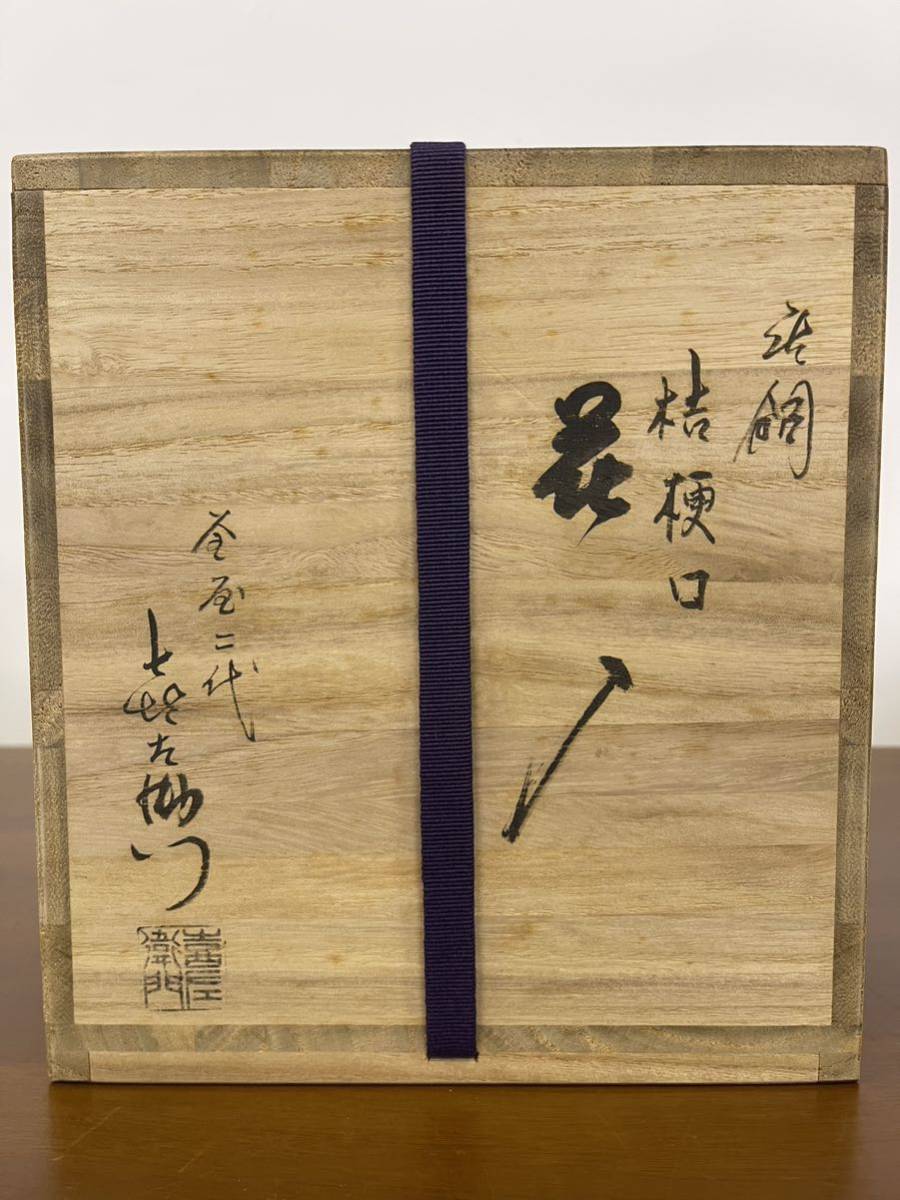 唐銅
桔梗口
花入
釜屋二代
七喜左衛門
喜左
衛門